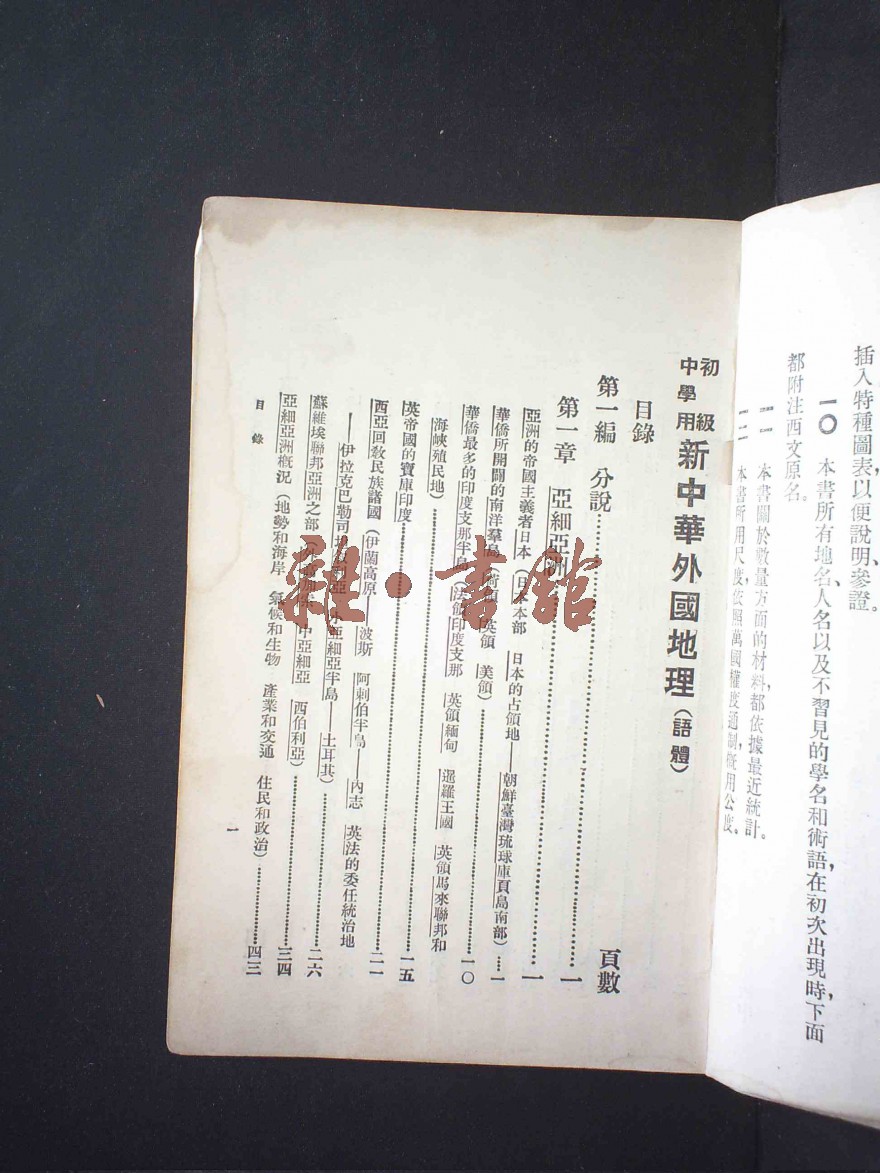 插入特種圖表，以便說明、參證。
一〇　本書所有地名、人名以及不習見的學名和術語，在初次出現時，下面
都附注西文原名。
一一　本書關於數量方面的材料，都依據最近統計。
一二　本書所用尺度，依照萬國權度通制，概用公度。
初級
中學用
新中華外國地理（語體）
目錄
頁數
第一編　分說……一
第一章　亞細亞洲……一
亞洲的帝國主義者日本（日本本部　日本的占領地——朝鮮臺灣琉球庫頁島南部）……一
華僑所開闢的南洋羣島（荷領　英領　美領）……一〇
華僑最多的印度支那半島（法領印度支那　英領緬甸　暹羅王國　英領馬來聯邦和
海峽殖民地）……一五
英帝國的寶庫印度……二一
西亞回敎民族諸國（伊蘭高原——波斯　阿剌伯半島——內志　英法的委任統治地
——伊拉克巴勒司坦敍利亞　小亞細亞半島——土耳其）……二六
蘇維埃聯邦亞洲之部（　中亞細亞　西伯利亞）……三四
亞細亞洲概況（地勢和海岸　氣候和生物　產業和交通　住民和政治）……四三
目錄
一
雜·書館